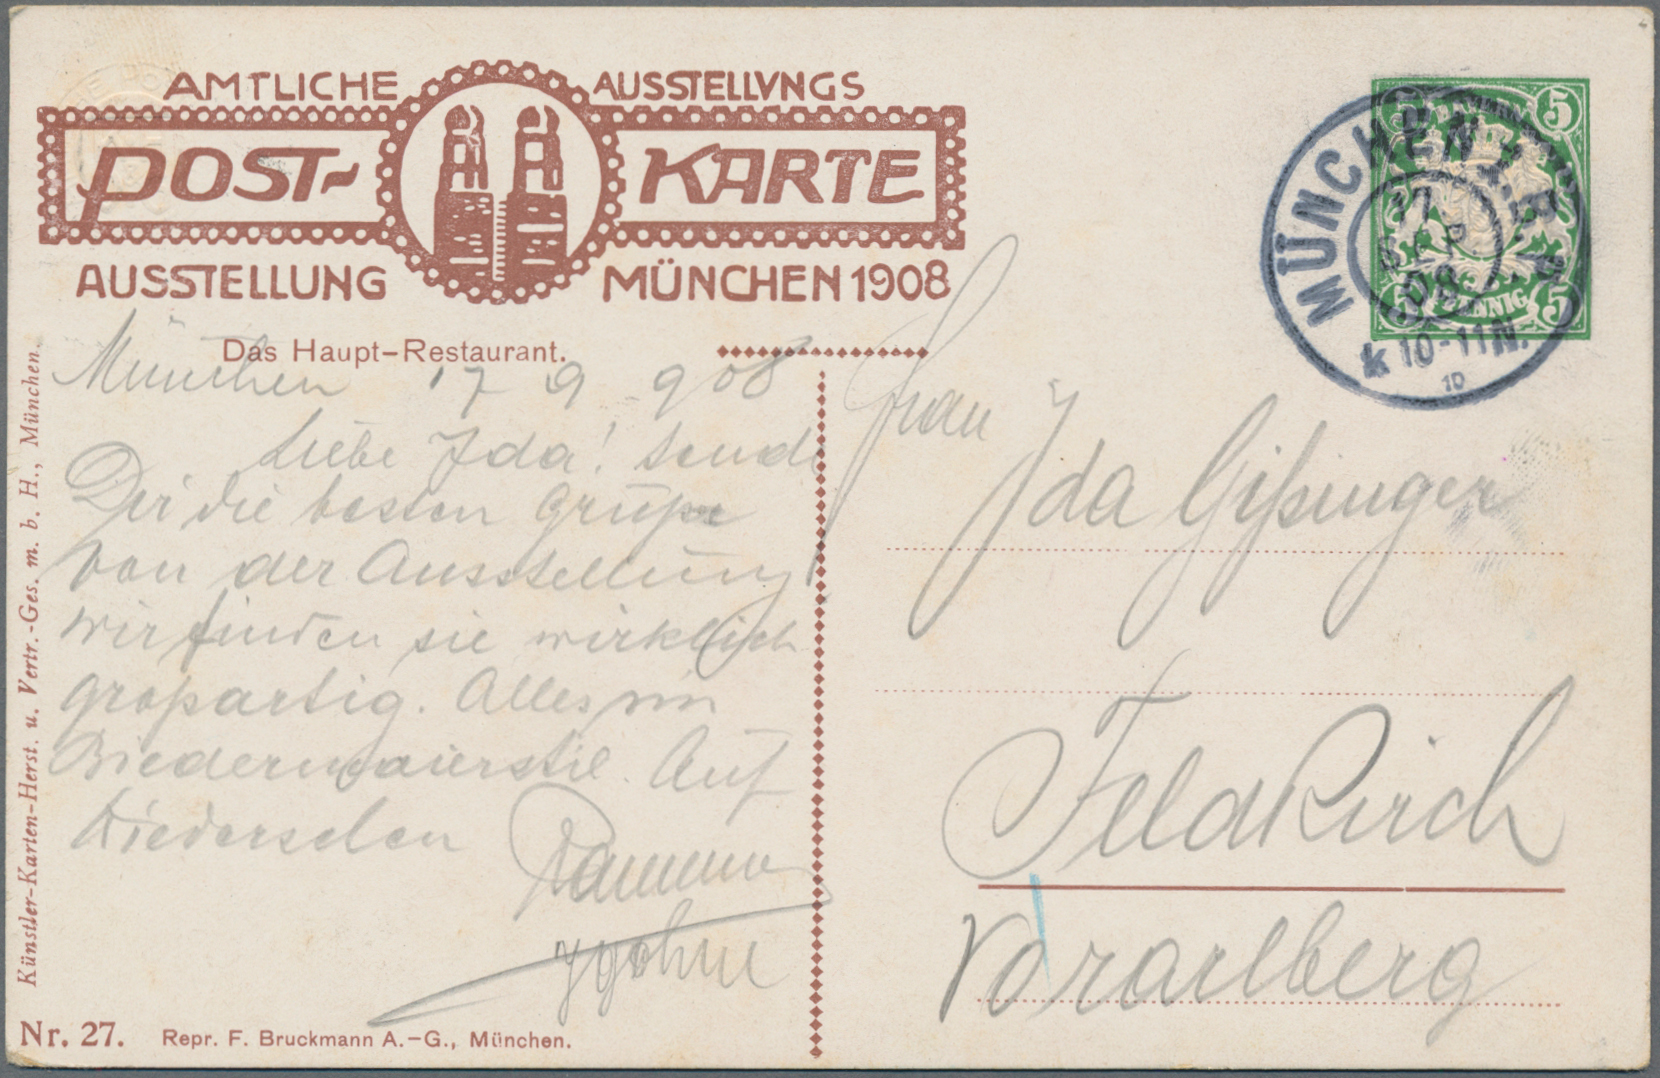 AMTLICHE AUSSTELLVNGS
POST- KARTE
AUSSTELLUNG MÜNCHEN 1908
Das Haupt-Restaurant.
München 17 9 908
Liebe Ida! sende
Dir die besten Grüße
von der Ausstellung
wir finden sie wirklich
großartig. Alles im
Biedermaierstil. Auf
Wiedersehen
Künstler-Karten-Herst. u. Vertr.-Ges. m. b. H., München.
Nr. 27. Repr. F. Bruckmann A.-G., München.
5 5
BAYERN
PFENNIG
5 5
MÜNCHEN 1. B.P.
17
SEP
08
k 10-11N.
10
Frau
Ida Gißinger
Feldkirch
Vorarlberg